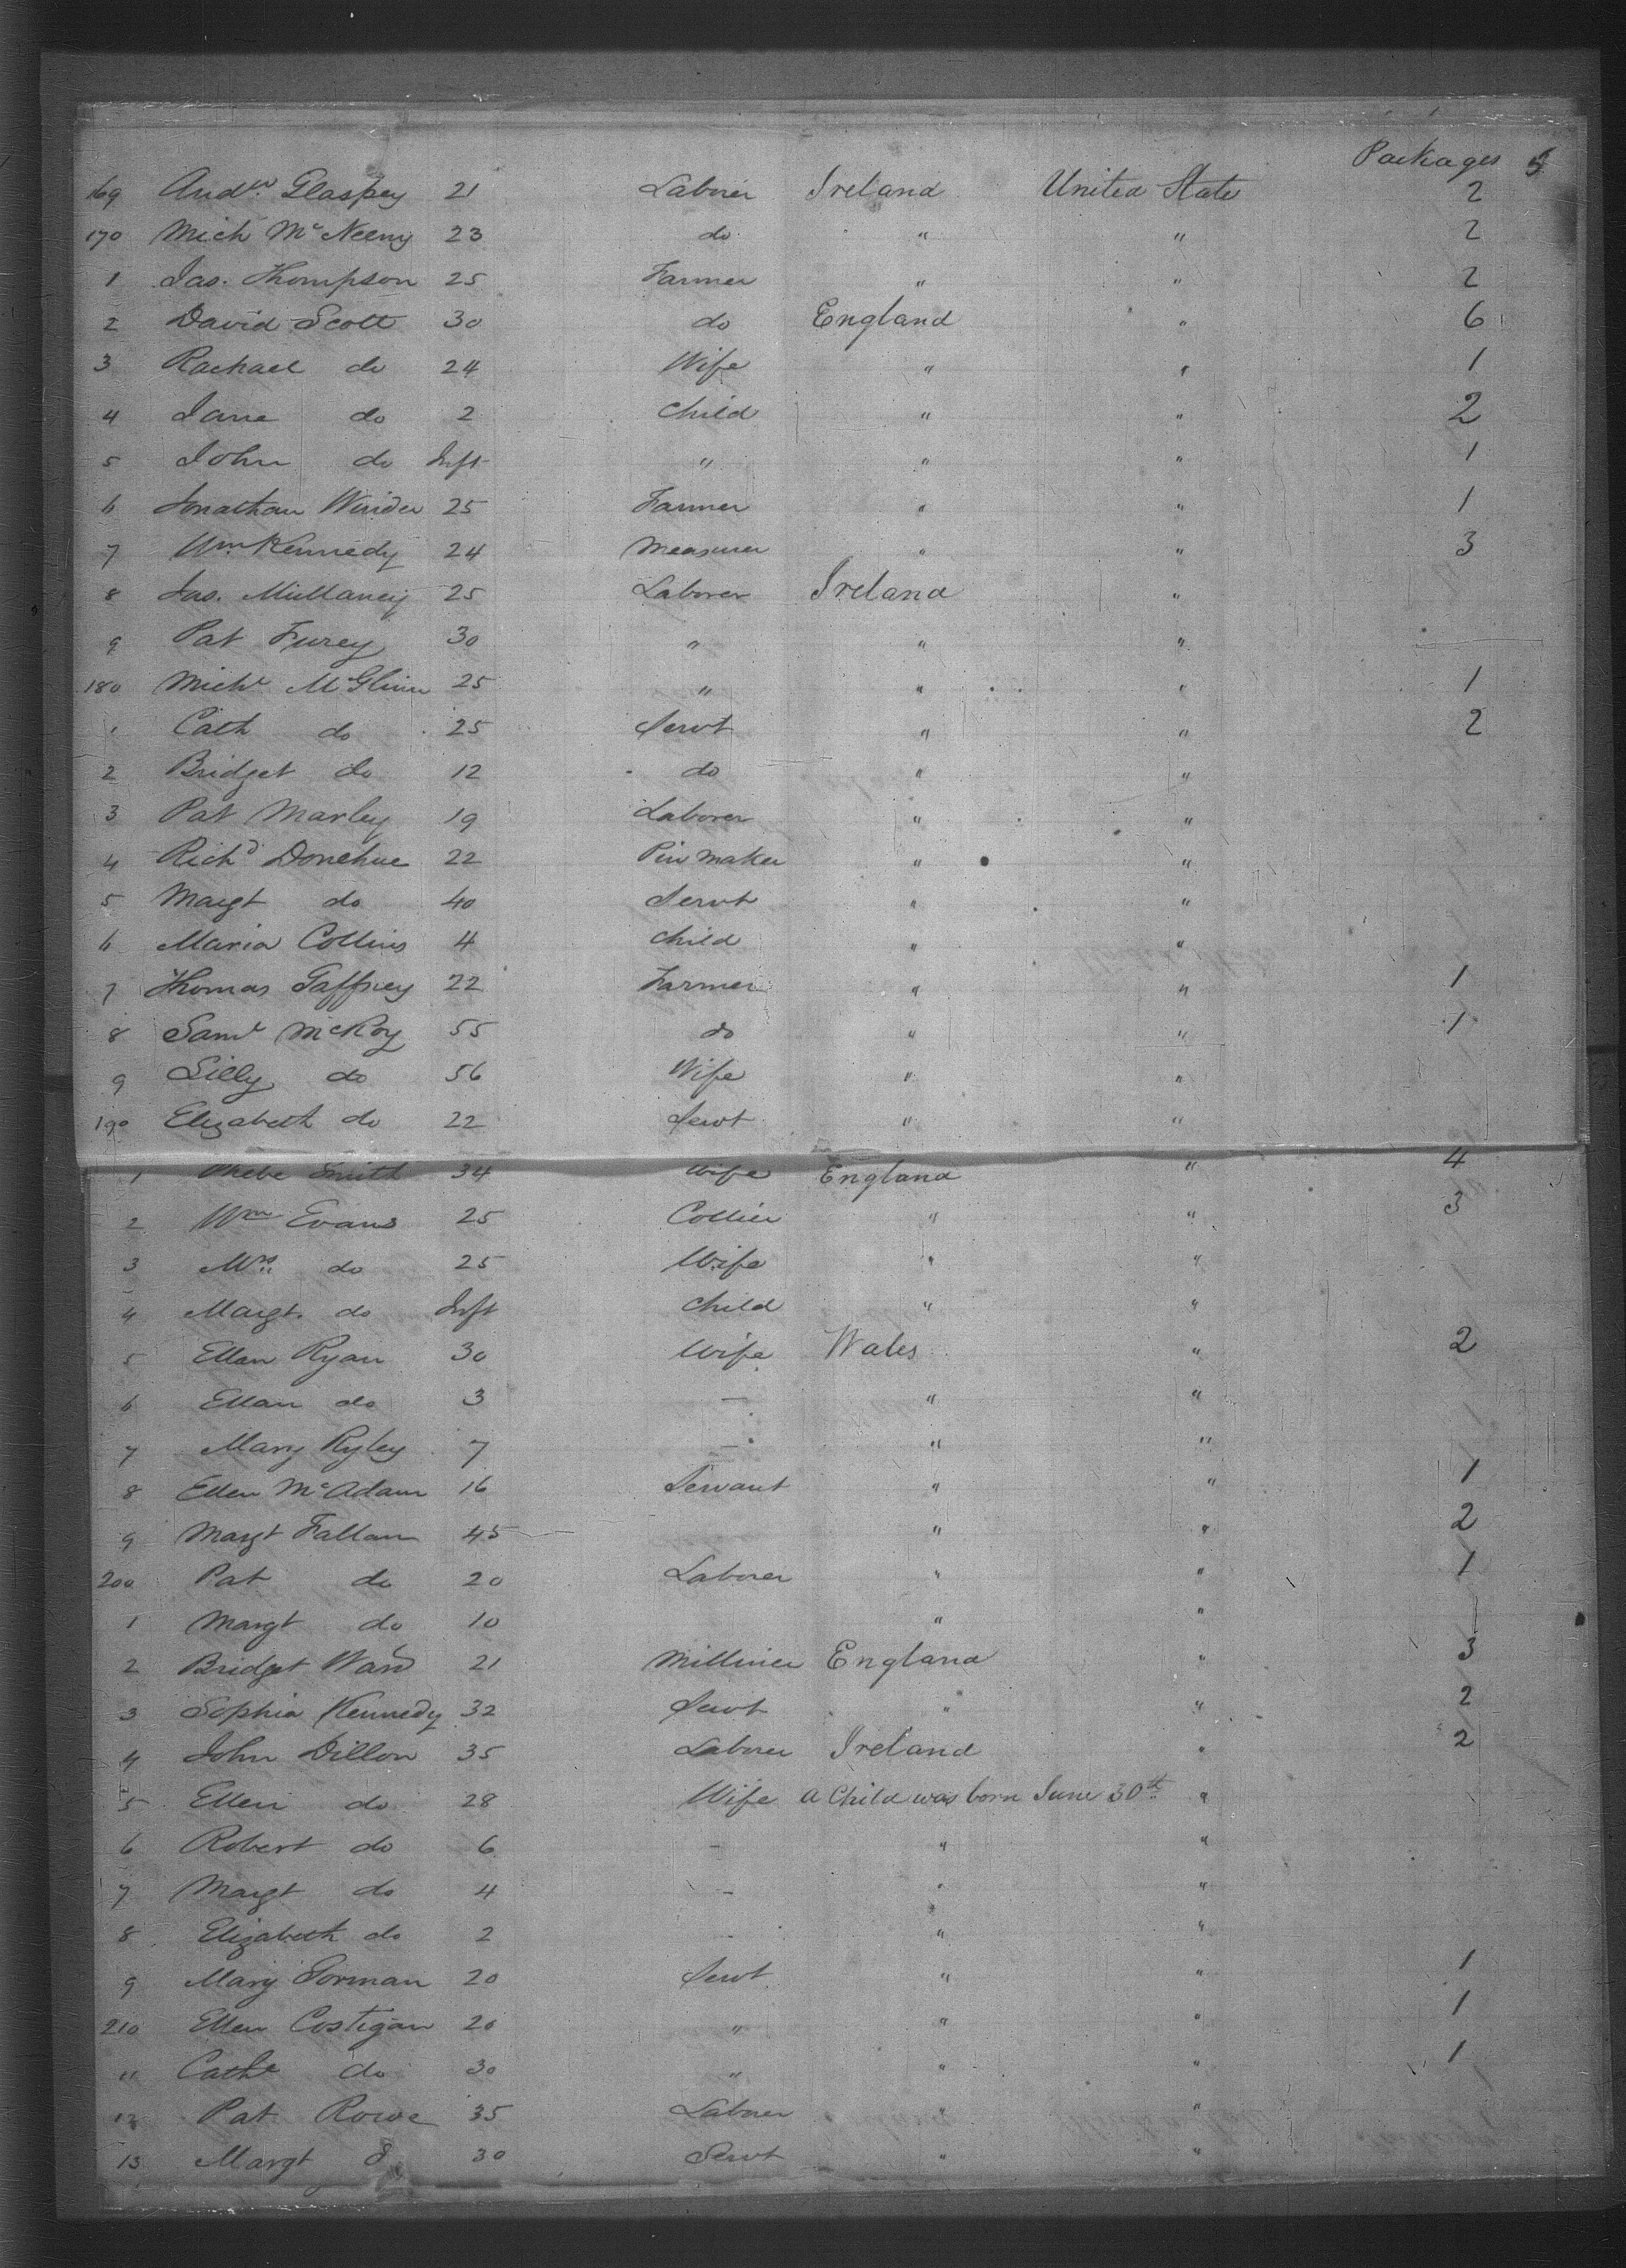 Packages 5
169 Andw. Glaspey 21 Laborer Ireland United State 2
170 Mich McNeeny 23 do " " 2
1 Jas. Thompson 25 Farmer " " 2
2 David Scott 30 do England " 6
3 Rachael do 24 Wife " " 1
4 Jane do 2 Child " " 2
5 John do Inft " " " 1
6 Jonathan Winder 25 Farmer " " 1
7 Wm Kennedy 24 Measurer " " 3
8 Jas. Mullaney 25 Laborer Ireland "
9 Pat Furey 30 " " "
180 Michl McGlinn 25 " " " 1
1 Cath do 25 Servt " " 2
2 Bridget do 12 do " "
3 Pat Marley 19 Laborer " "
4 Richd Donehue 22 Pin maker " "
5 Margt do 40 Servt " "
6 Maria Collins 4 Child " "
7 Thomas Gaffney 22 Farmer " " 1
8 Saml McKoy 55 do " " 1
9 Lilly do 56 Wife " "
190 Elizabeth do 22 Servt " "
1 Phebe Smith 34 Wife England " 4
2 Wm Evans 25 Collier " " 3
3 Mrs do 25 Wife " "
4 Margt. do Inft Child " "
5 Ellen Ryan 30 Wife Wales " 2
6 Ellan do 3 - " "
7 Mary Ryley 7 - " "
8 Ellen McAdam 16 Servant " " 1
9 Margt Fallan 45 " " 2
200 Pat do 20 Laborer " " 1
1 Margt do 10 " "
2 Bridget Ward 21 Milliner England " 3
3 Sophia Kennedy 32 Servt " " 2
4 John Dillon 35 Laborer Ireland " 2
5 Ellen do 28 Wife a Child was born June 30th "
6 Robert do 6 - " "
7 Margt do 4 - " "
8 Elizabeth do 2 - " "
9 Mary Gorman 20 Servt " " 1
210 Ellen Costigan 20 " " " 1
11 Cathe do 30 " " " 1
12 Pat Rowe 35 Laborer " "
13 Margt 30 Servt " "